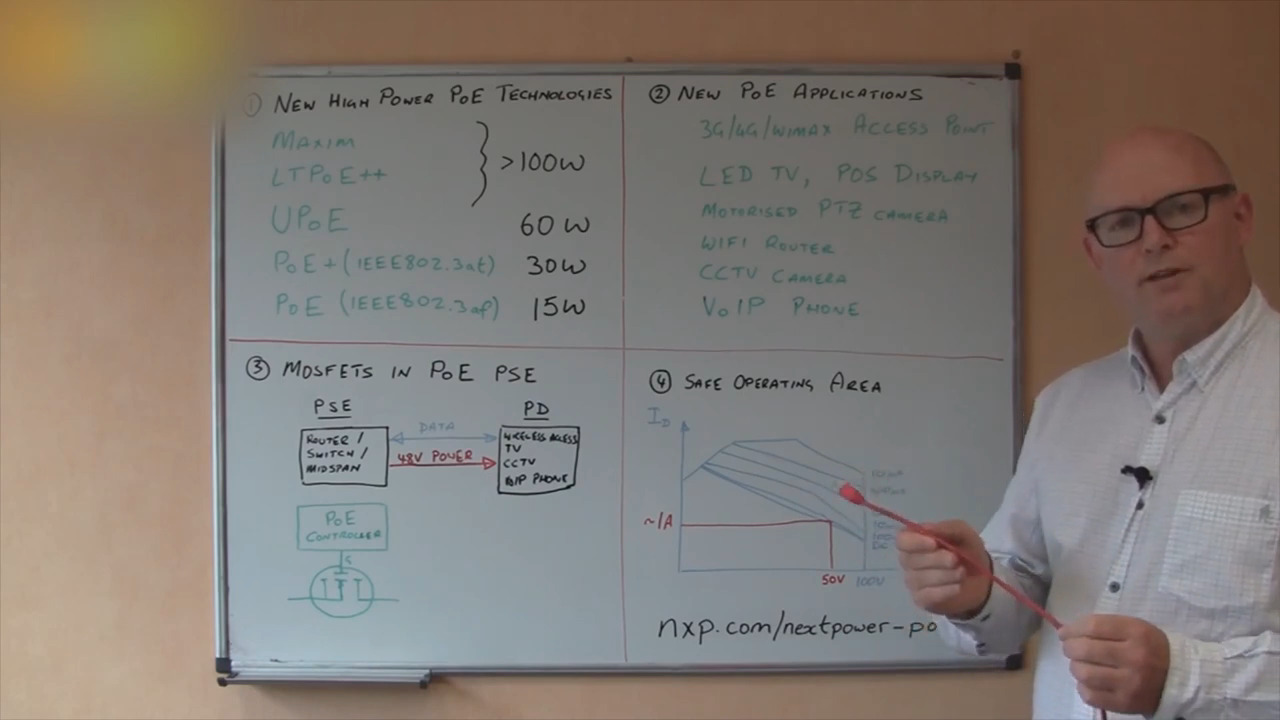 ① NEW HIGH POWER PoE TECHNOLOGIES
MAXIM
LTPoE++
>100W
UPoE 60W
PoE+(IEEE802.3at) 30W
PoE (IEEE802.3af) 15W
② NEW PoE APPLICATIONS
3G/4G/WIMAX ACCESS POINT
LED TV, POS DISPLAY
MOTORISED PTZ CAMERA
WIFI ROUTER
CCTV CAMERA
VoIP PHONE
③ MOSFETS IN PoE PSE
PSE
PD
ROUTER/
SWITCH/
MIDSPAN
DATA
48V POWER
WIRELESS ACCESS
TV
CCTV
VoIP PHONE
PoE
CONTROLLER
④ SAFE OPERATING AREA
ID
~1A
DC
50V 100V
nxp.com/nextpower-po